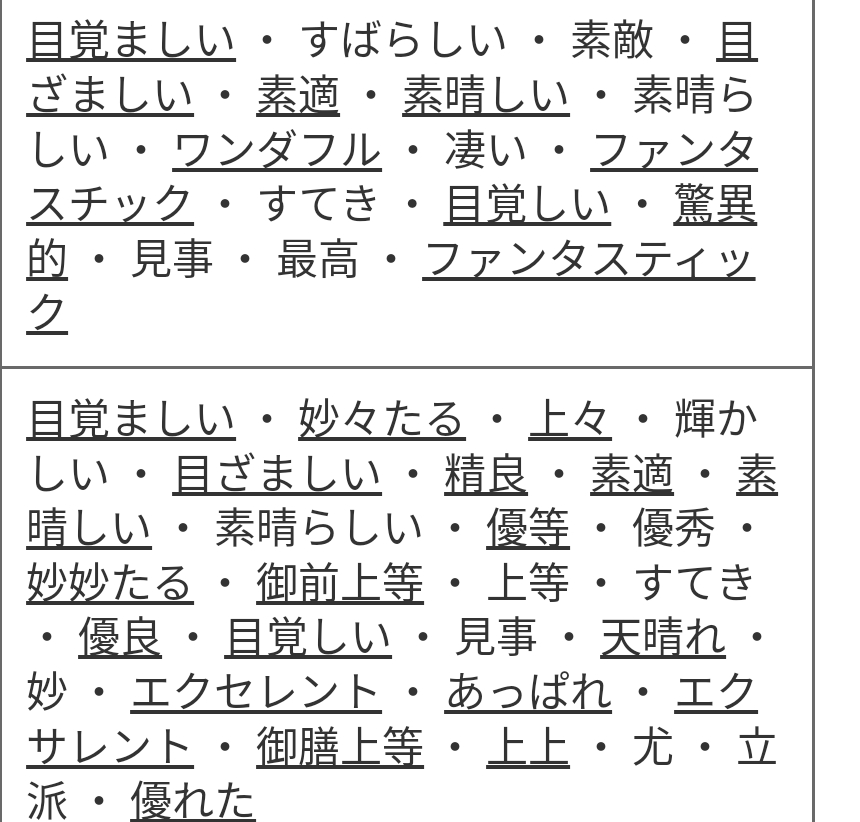 目覚ましい ・ すばらしい ・ 素敵 ・ 目
ざましい ・ 素適 ・ 素晴しい ・ 素晴ら
しい ・ ワンダフル ・ 凄い ・ ファンタ
スチック ・ すてき ・ 目覚しい ・ 驚異
的 ・ 見事 ・ 最高 ・ ファンタスティッ
ク
目覚ましい ・ 妙々たる ・ 上々 ・ 輝か
しい ・ 目ざましい ・ 精良 ・ 素適 ・ 素
晴しい ・ 素晴らしい ・ 優等 ・ 優秀 ・
妙妙たる ・ 御前上等 ・ 上等 ・ すてき
・ 優良 ・ 目覚しい ・ 見事 ・ 天晴れ ・
妙 ・ エクセレント ・ あっぱれ ・ エク
サレント ・ 御膳上等 ・ 上上 ・ 尤 ・ 立
派 ・ 優れた